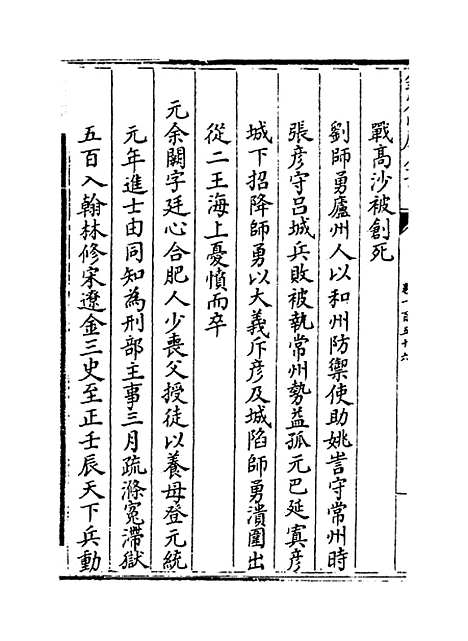 戰高沙被創死
劉師勇廬州人以和州防禦使助姚訔守常州時
張彦守吕城兵敗被執常州勢益孤元巴延寘彦
城下招降師勇以大義斥彦及城陷師勇潰圍出
從二王海上憂憤而卒
元余闕字廷心合肥人少喪父授徒以養母登元統
元年進士由同知為刑部主事三月疏滌冤滯獄
五百入翰林修宋遼金三史至正壬辰天下兵動
卷一百五十六